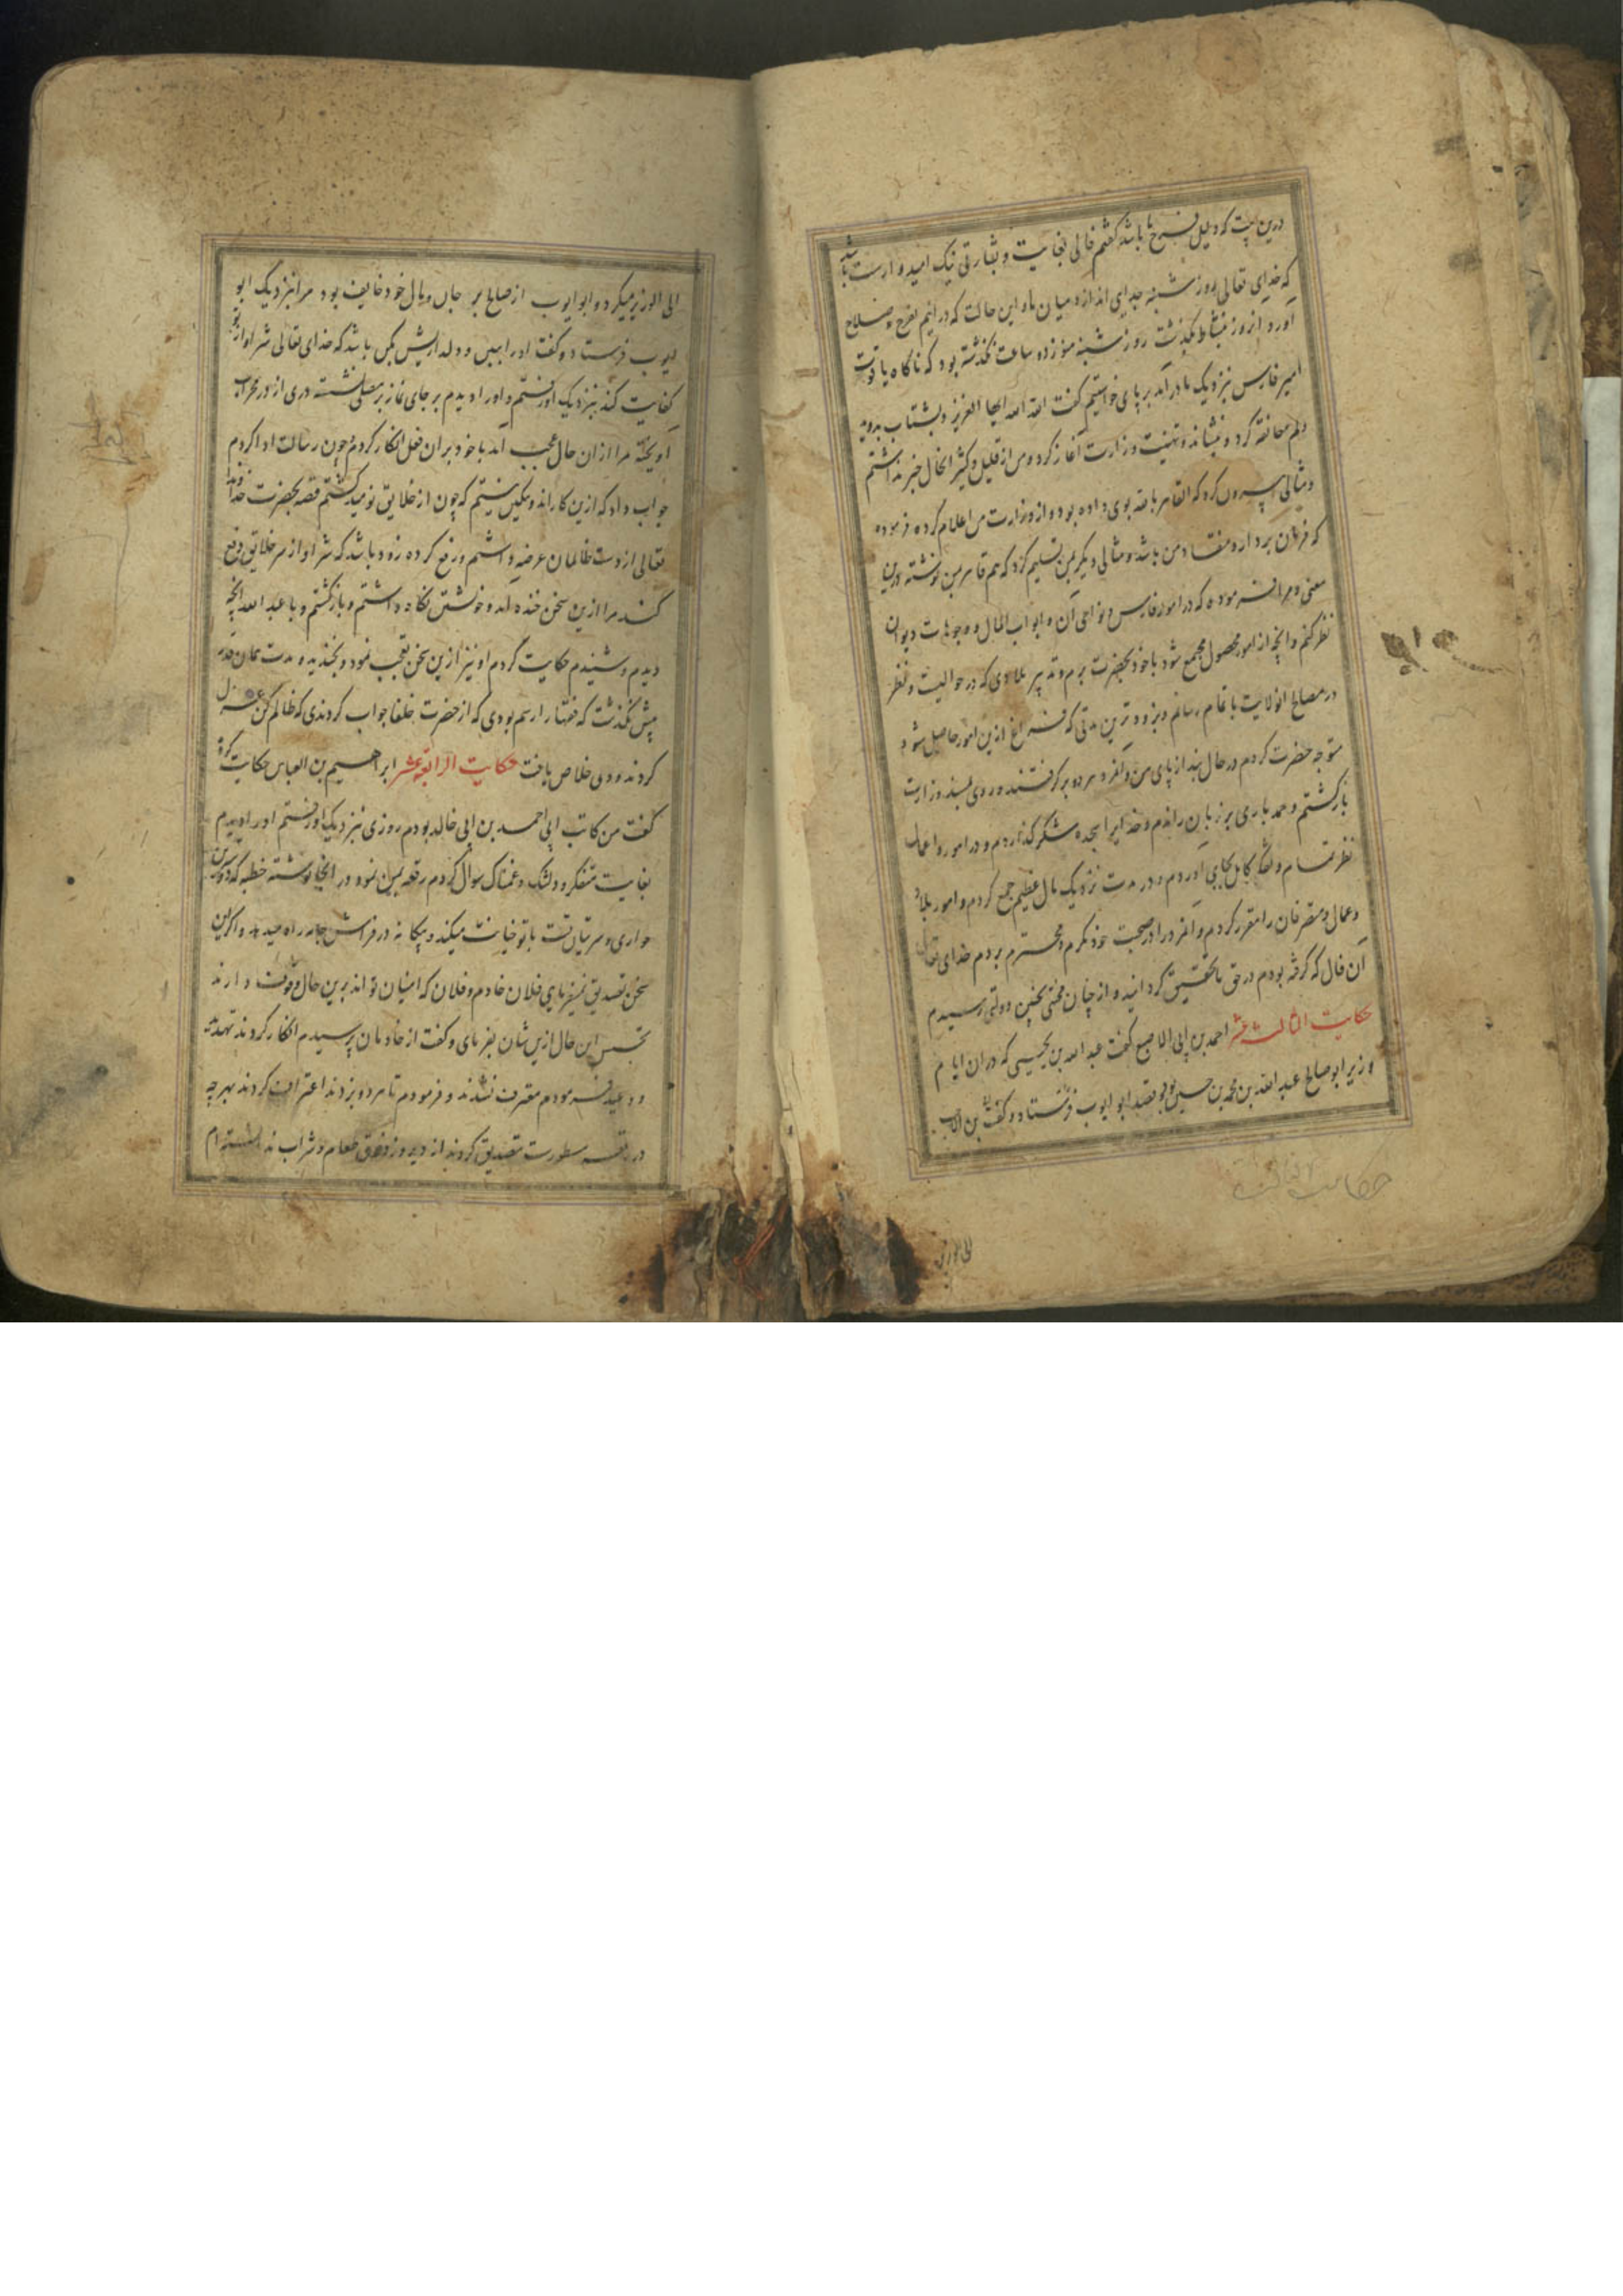 درین بیت که دلیل فرح ما باشد گفتم فالی بغایت و بشارتی نیک امیدوار است باشد
که خدای تعالی روز شنبه جدایی اندازد میان ما و این حالت که درانیم بفرح و صلاح
آورد و آنروز بنشاط بگذشت روز شنبه هنوز ده ساعت نگذشته بود که ناگاه یاقوت
امیر فارس نزدیک ما درآمد بر پای خواستیم گفت الله الله ایها العزیز و بشتاب بدوید
و بهم معانقه کرد و بنشاند و تهنیت وزارت آغاز کرد و من از قلیل و کثیر الحال خبر نداشتم
و مثالی بیرون کرد که القاهر بالله بوی داده بود و از وزارت من اعلام کرده و فرموده
که فرمان بردار و منقاد من باشد و مثالی دیگر بمن تسلیم کرد که هم قاهر بمن نوشته درین
معنی و مرا فرموده که در امور فارس و نواحی آن و ابواب المال و وجوهات دیوان
نظر کنم و آنچه از امور محصول مجتمع شود باخود بحضرت برم و تدبیر بلادی که در حوالیست و نظر
در مصالح انولایت باتمام رسانم و بزودترین مدتی که فراغ ازین امور حاصل شود
متوجه حضرت کردم در حال بند از پای من و آنمرد هر دو برگرفتند و روی بمسند وزارت
بازگشتم و حمد باری بر زبان راندم و خدایرا سجده شکر گذاردم و در امور و اعمال
نظر تمام و لحاظ کامل بجای آوردم و در مدت نزدیک مال عظیم جمع کردم و امور بلاد
و عمال و متصرفان را مقرر کردم و آنمرد را در صحبت خود مکرم و محترم بردم خدای تعالی
آن فال که گرفته بودم در حق ما تحقیق گردانید و از چنان محنتی بچنین دولتی رسیدم
حکایت الثالث عشر احمد بن ابی الاصبع گفت عبدالله بن یحیی که در آن ایام
وزیر ابوصالح عبدالله بن محمد بن حسین بود بقصد ابو ایوب فرستاد و گفت بن الاب
حکایت الثالث
الی الوزیر
الی الوزیر میکرد و ابو ایوب از صالح بر جان و مال خود خایف بود مرا نزدیک ابو
ایوب فرستاد و گفت او را ببین و دلداریش بکن باشد که خدای تعالی شر او از تو
کفایت کند نزدیک او رفتم و او را دیدم بر جای نماز بر مصلی نشسته دری از در محراب
آویخته مرا از آن حال عجب آمد باخود بر آن فعل انکار کردم چون رسالت ادا کردم
جواب داد که ازین کار اندوهگین نیستم که چون از خلایق نومید گشتم قصه بحضرت خداوند
تعالی از دست ظالمان عرضه داشتم و رفع کرده زود باشد که شر او از سر خلایق دفع
کند مرا ازین سخن خنده آمد و خویشتن نگاه داشتم و بازگشتم و با عبدالله آنچه
دیدم و شنیدم حکایت کردم او نیز ازین سخن تعجب نمود و بخندید و مدت همان قدر
بیش نگذشت که فقها را رسم بودی که از حضرت خلفا جواب کردندی که ظالم کن عزل
کردند و وی خلاص یافت حکایت الرابعة عشر ابراهیم بن العباس حکایت کرد
گفت من کاتب ابی احمد بن ابی خالد بودم روزی نزدیک او رفتم او را دیدم
بغایت متفکر و دلتنگ و غمناک سوال کردم رقعه بمن نمود در آنجا نوشته خطبه که
جواری و سریات تست باتو خیانت میکند و بیگانه در فراش جامه راه میدهد و اگر این
سخن تصدیق نمیفرمایی فلان خادم و فلان که امینان تواند برین حال وقوف دارند
تجسس این حال ازیشان بفرمای و گفت از خادمان پرسیدم انکار کردند تهدید
و وعید فرمودم معترف نشدند و فرمودم تا هر دو بزدند اعتراف کردند بهر چه
در رقعه مسطورست تصدیق کردند از دیروز ذوق طعام و شراب ندانسته ام